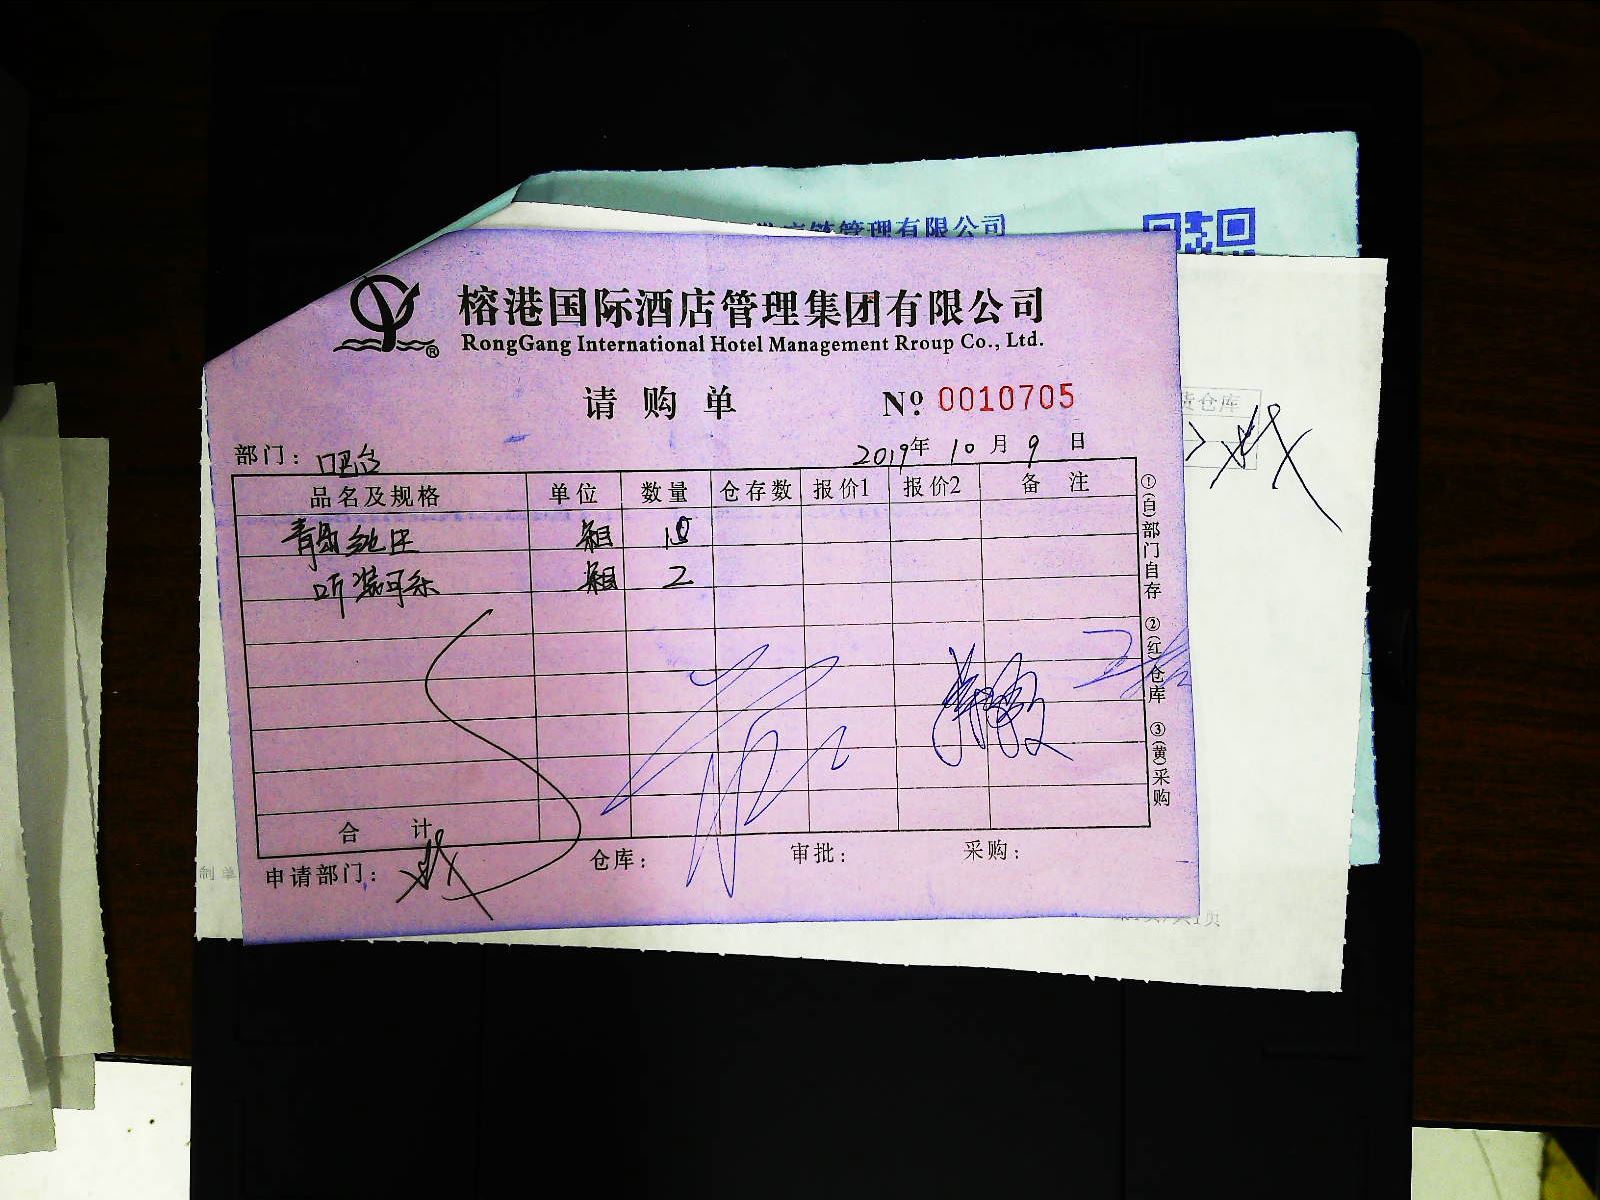 有限公司
榕港国际酒店管理集团有限公司
RongGang International Hotel Management Rroup Co., Ltd.
请购单 Nº 0010705
货仓库
部门: 吧台 2019年 10月 9日
品名及规格 单位 数量 仓存数 报价1 报价2 备注
青岛纯生 箱
听装可乐 箱 2
合计
申请部门: 仓库: 审批: 采购:
①(白)部门自存 ②(红)仓库 ③(黄)采购
制单